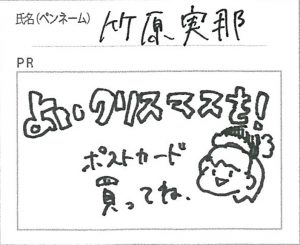 氏名(ペンネーム)
竹原実那
PR
よいクリスマスを!
ポストカード
買ってね、